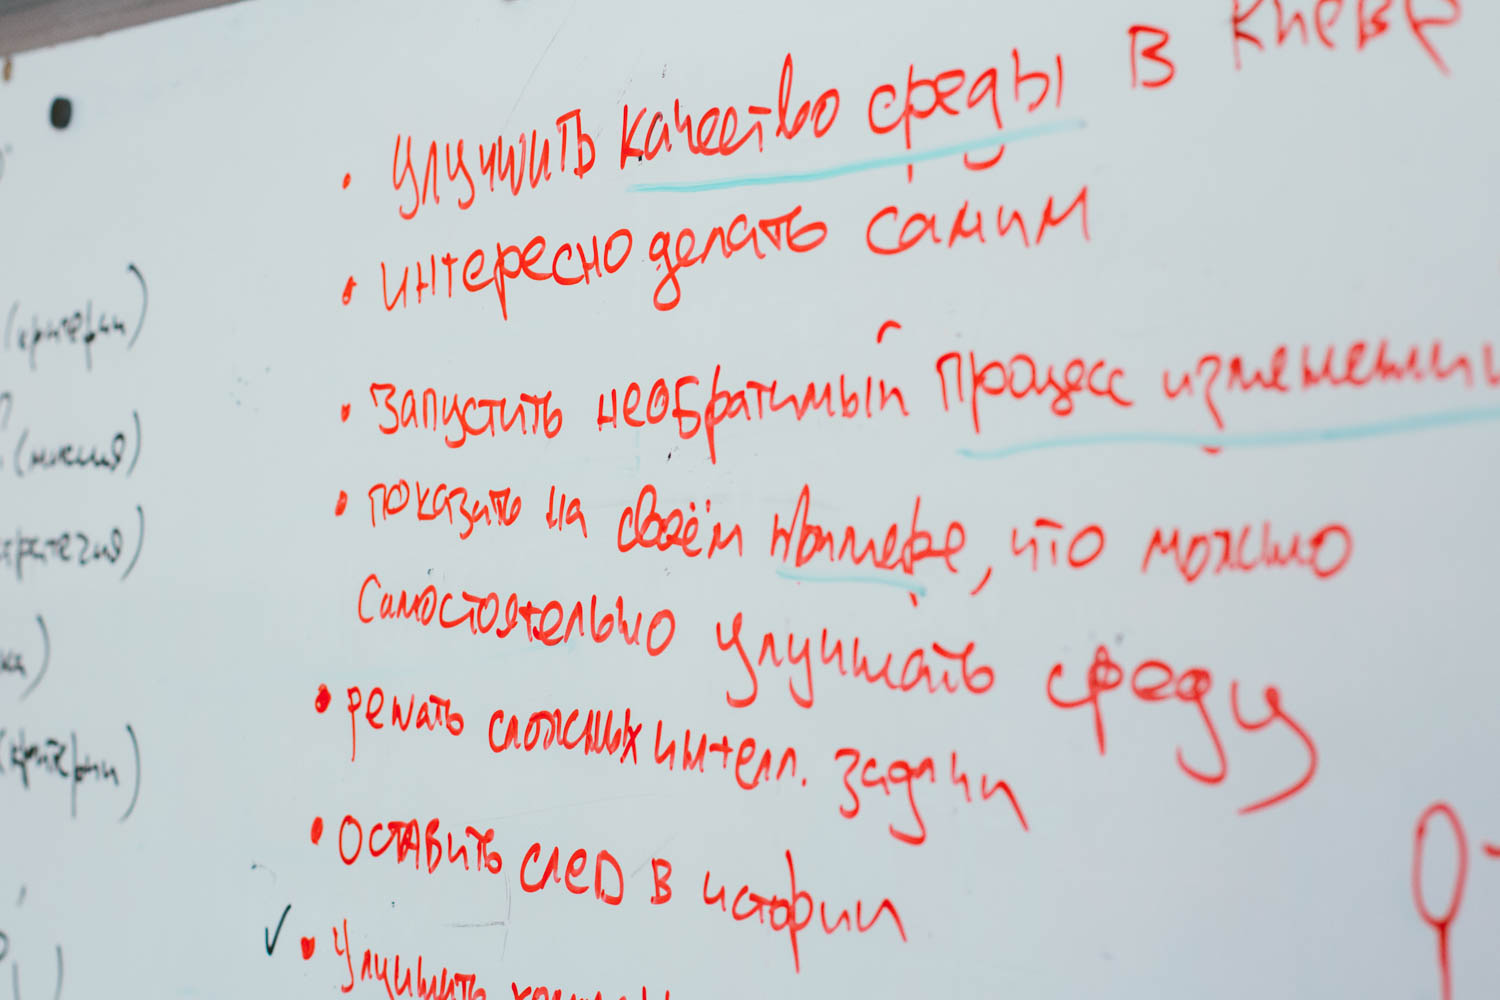 • улучшить качество среды в Киеве
• интересно делать самим
• запустить необратимый процесс изменений
• показать на своём примере, что можно
самостоятельно улучшать среду
• решать сложных интелл. задачи
• оставить след в истории
✓ • Улучшить
(критерии)
(миссия)
(критерии)